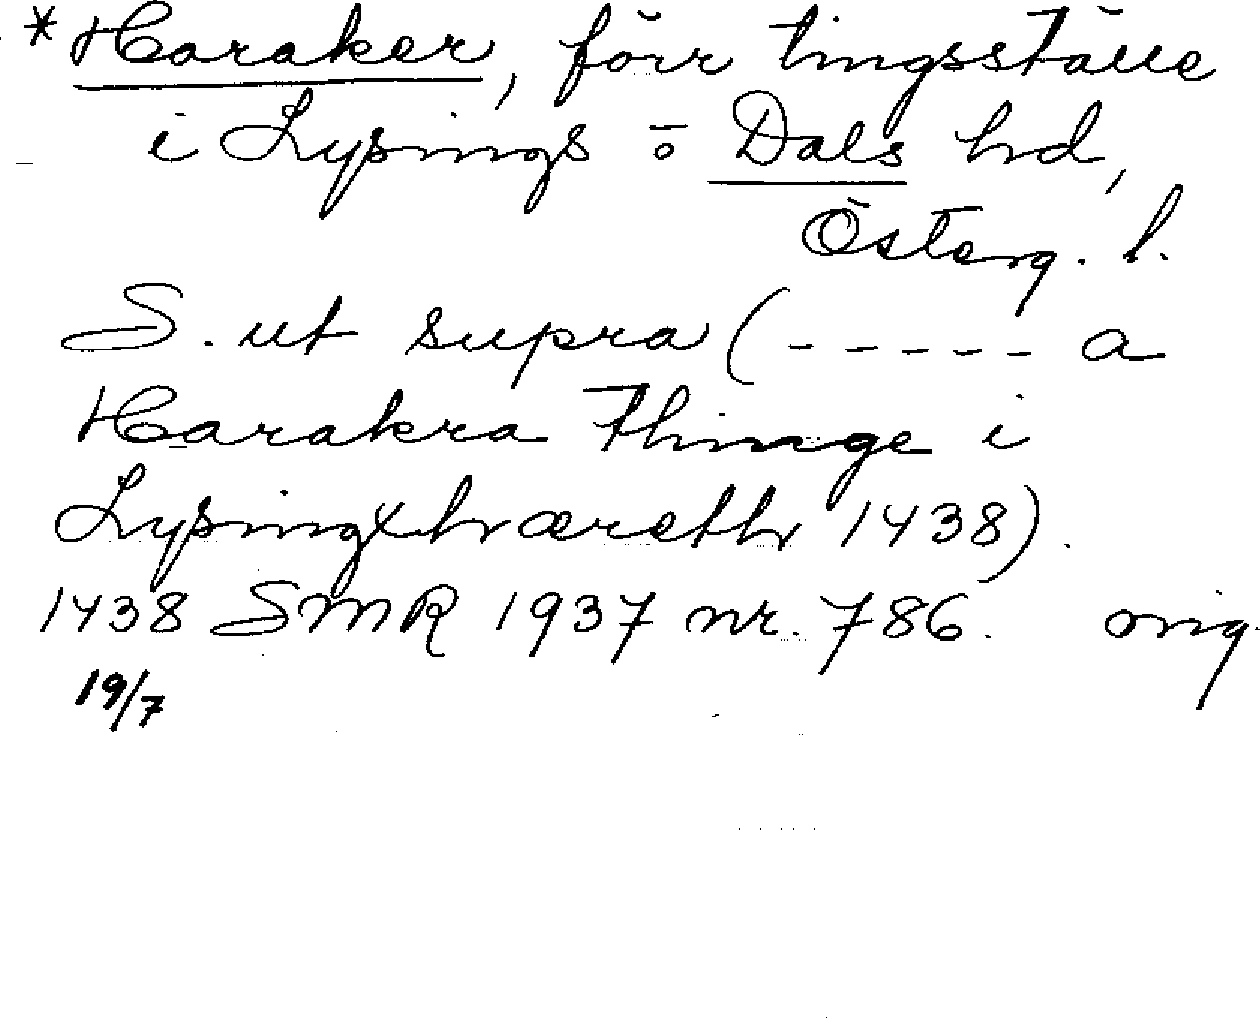 *Haraker, förr tingsställe
i Lysings o Dals hd,
Österg. l.
S. ut supra (----- a
Harakra thinge i
Lysingxhæreth 1438).
1438 SMR 1937 nr. 786. orig
19/7